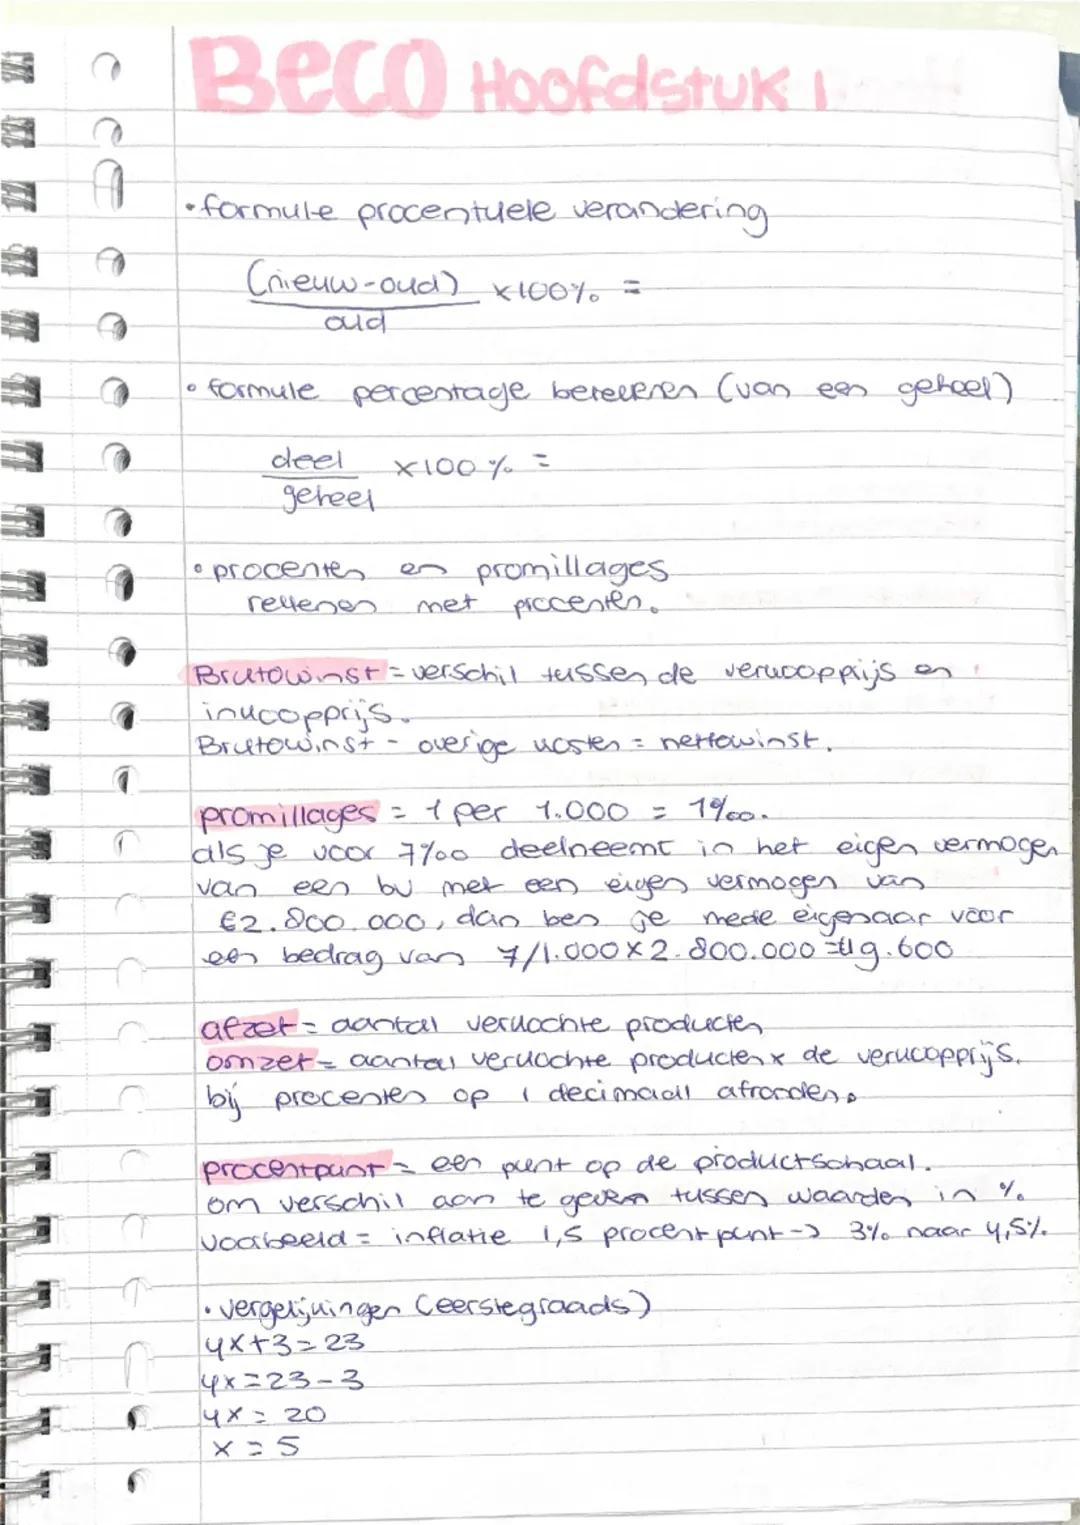 Beco Hoofdstuk 1
• formule procentuele verandering
(nieuw-oud) x100% =
oud
• formule percentage berekenen (van een geheel)
deel x100% =
geheel
• procenten en promillages
rekenen met procenten.
Brutowinst = verschil tussen de verkoopprijs en
inkoopprijs.
Brutowinst - overige kosten = nettowinst.
promillages = 1 per 1.000 = 1‰.
als je voor 7‰ deelneemt in het eigen vermogen
van een bv met een eigen vermogen van
€2.800.000, dan ben je mede eigenaar voor
een bedrag van 7/1.000 x 2.800.000 = €19.600
afzet = aantal verkochte producten
omzet = aantal verkochte producten x de verkoopprijs.
bij procenten op 1 decimaal afronden.
procentpunt = een punt op de productschaal.
om verschil aan te geven tussen waarden in %
voorbeeld = inflatie 1,5 procentpunt -> 3% naar 4,5%.
• vergelijkingen (eerstegraads)
4x+3=23
4x=23-3
4x = 20
x = 5